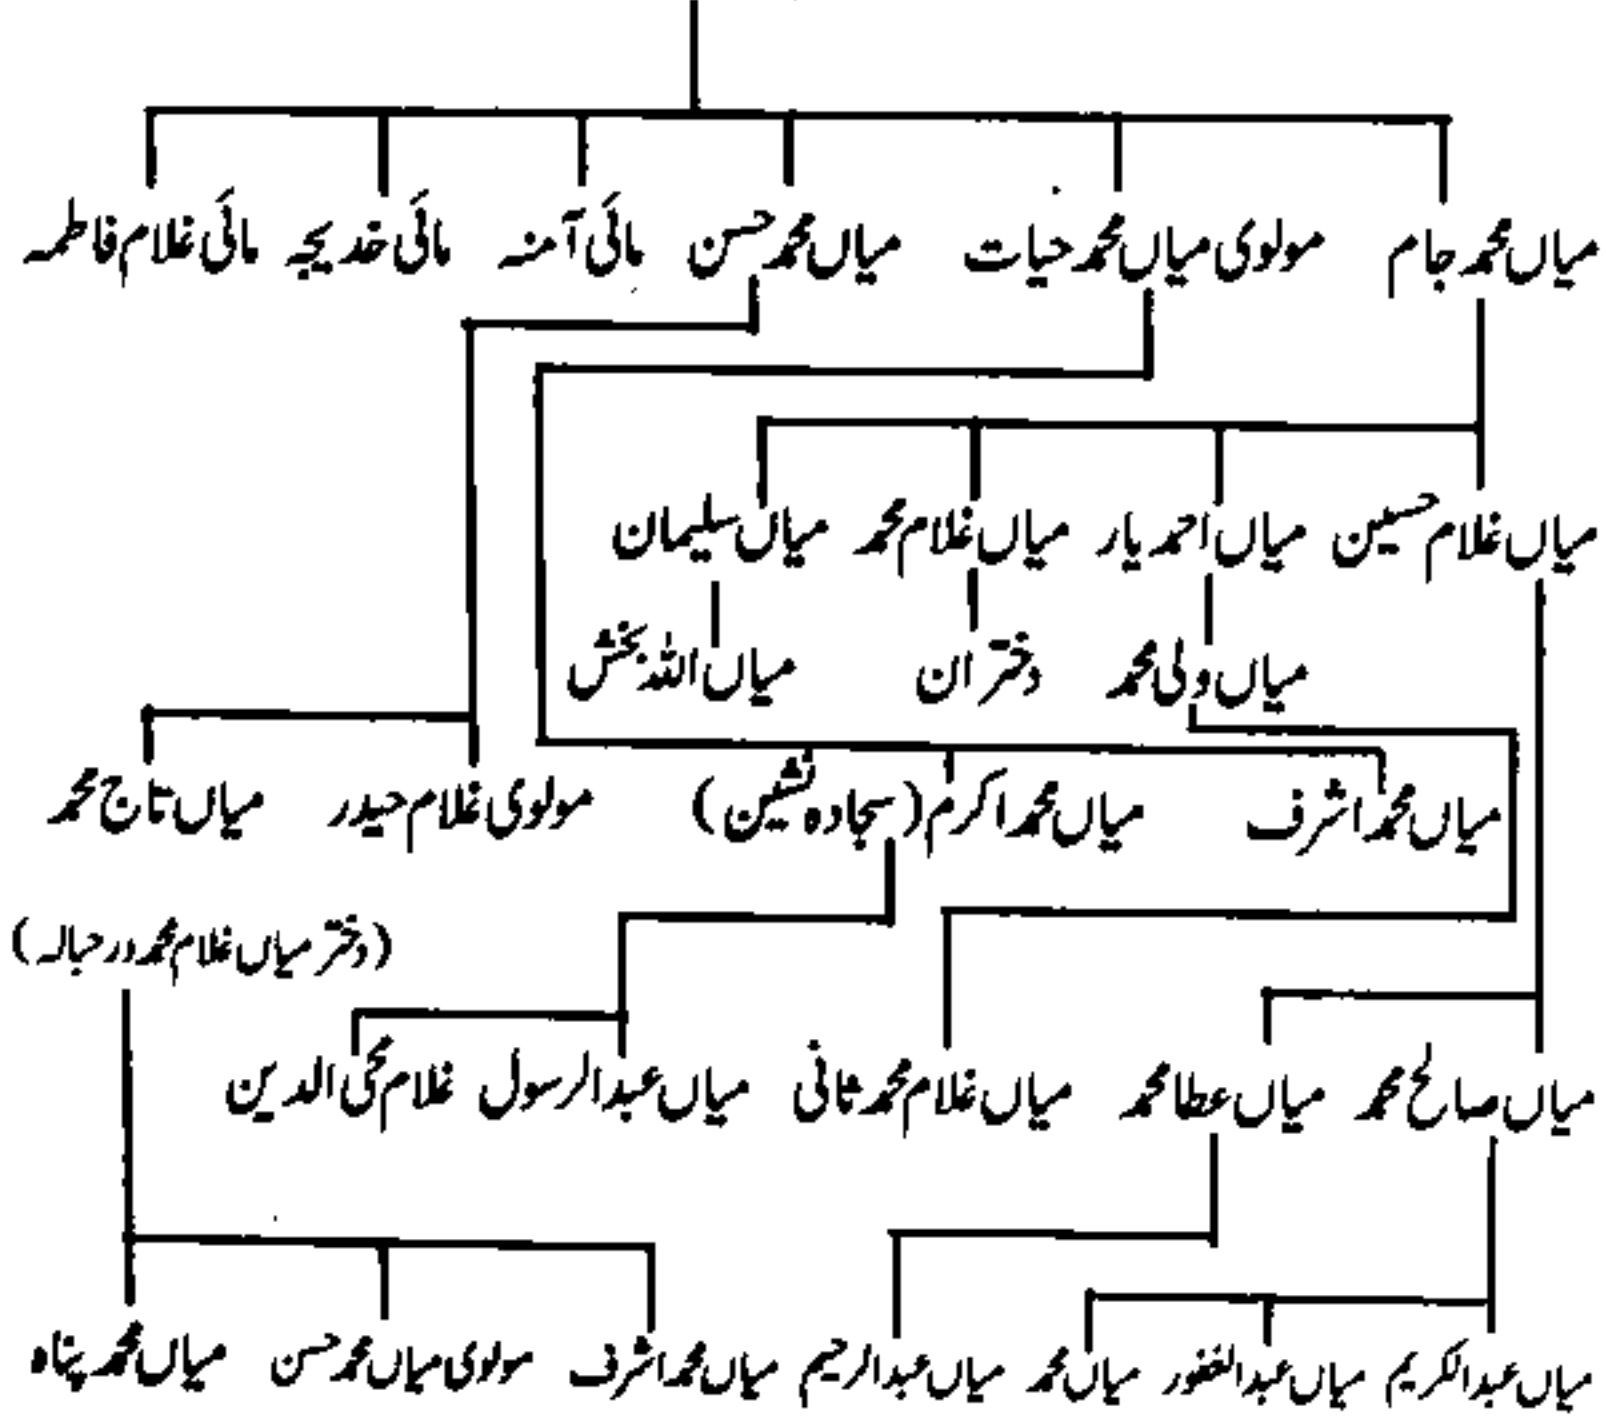 میاں محمد جام مولوی میاں محمد حیات میاں محمد حسن مائی آمنہ مائی خدیجہ مائی غلام فاطمہ
میاں غلام حسین میاں احمد یار میاں غلام محمد میاں سلیمان
میاں ولی محمد دختران میاں اللہ بخش
میاں محمد اشرف میاں محمد اکرم (سجادہ نشین) مولوی غلام حیدر میاں تاج محمد
(دختر میاں غلام محمد در حبالہ)
میاں صالح محمد میاں عطا محمد میاں غلام محمد ثانی میاں عبدالرسول غلام محی الدین
میاں عبدالکریم میاں عبدالغفور میاں محمد میاں عبدالرحیم میاں محمد اشرف مولوی میاں محمد حسن میاں محمد پناہ